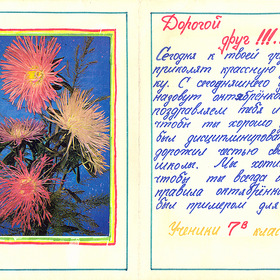 Дорогой
друг !!!
Сегодня к твоей
приколят красную
ку. С сегодняшнего
назовут октябрёнком
поздравляем тебя и
чтобы ты хорошо
был дисциплинирован
дорожил честью сво
школы. Мы хоти
чтобы ты всегда
правила октябрённ
был примером для
Ученики 7в клас